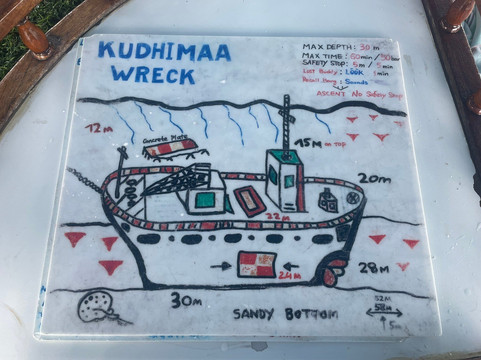 KUDHIMAA
WRECK
MAX DEPTH: 30 m
MAX TIME: 60min /
SAFETY STOP: 5m / min
Lost Buddy: Look 1 min
ASCENT No Safety Stop
12 M
Concrete Plate
15M on top
20M
22M
24M
28M
30M
SANDY BOTTOM
52M
58M
5m